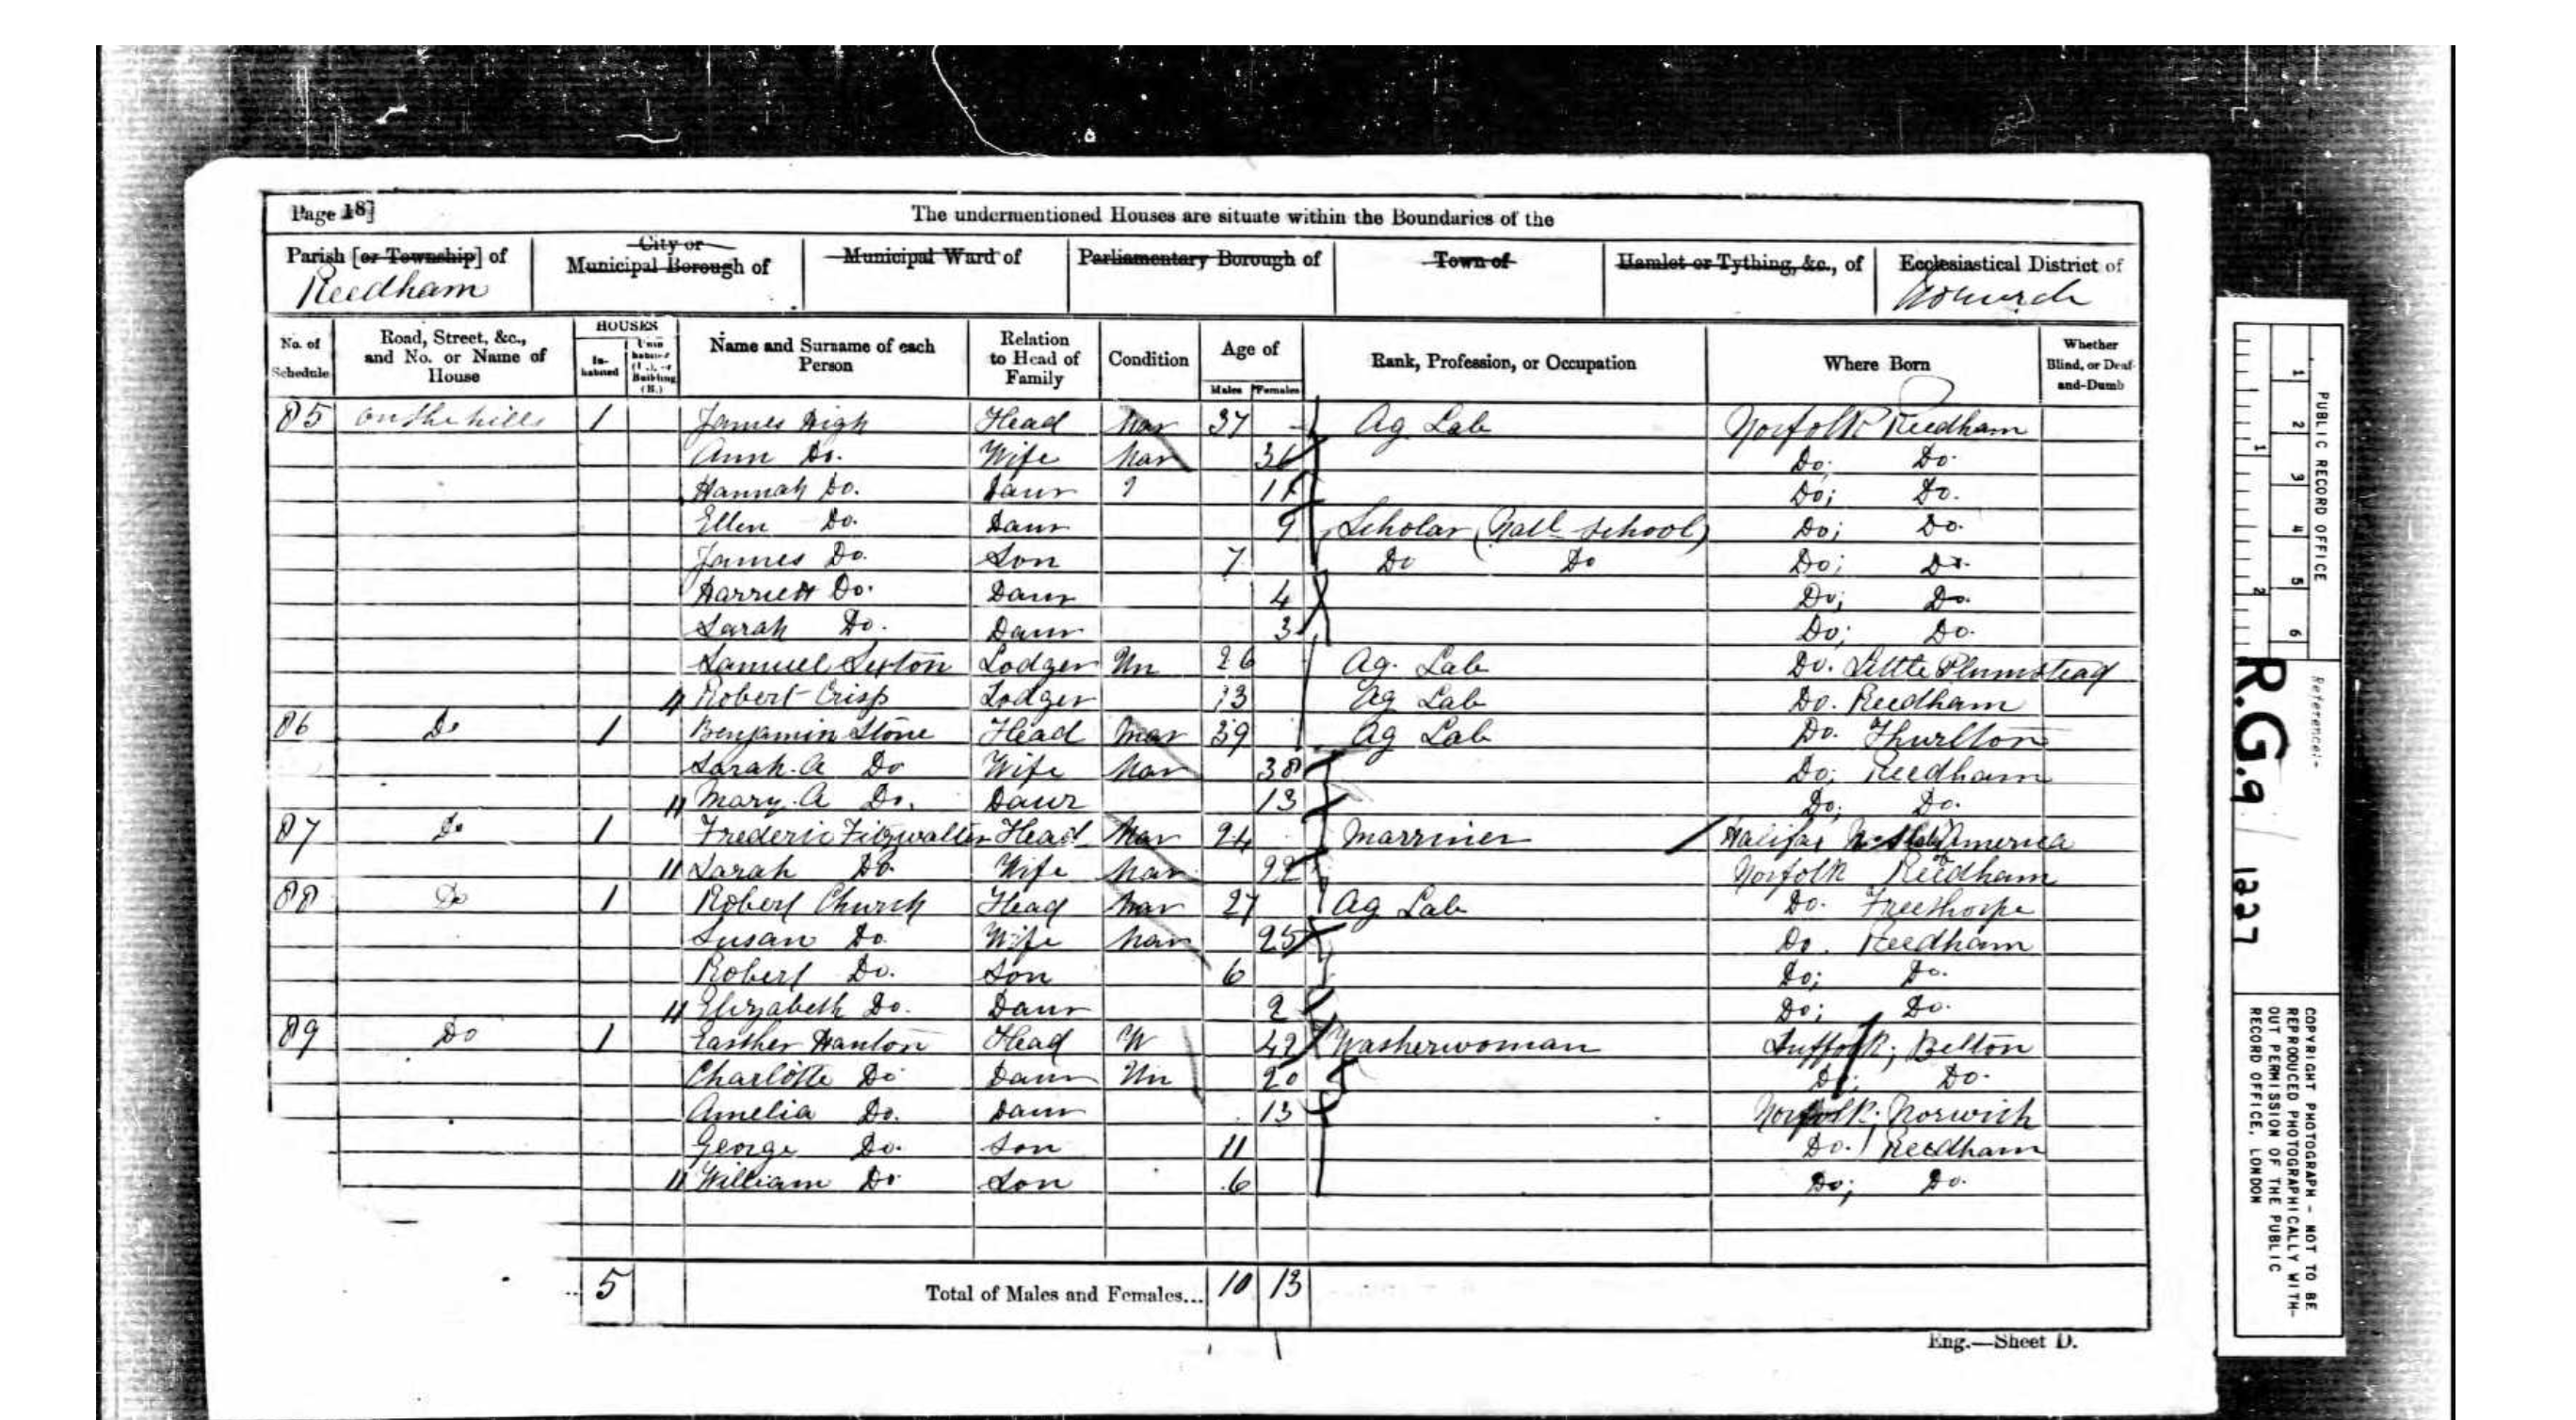 Page 18]
The undermentioned Houses are situate within the Boundaries of the
Parish [or Township] of
Reedham
City or
Municipal Borough of
Municipal Ward of
Parliamentary Borough of
Town of
Hamlet or Tything, &c., of
Ecclesiastical District of
No. of Schedule
Road, Street, &c., and No. or Name of House
HOUSES
In-habited
Unin-habited (U.), or Building (B.)
Name and Surname of each Person
Relation to Head of Family
Condition
Age of
Males
Females
Rank, Profession, or Occupation
Where Born
Whether Blind, or Deaf-and-Dumb
85 On the hills 1 James High Head Mar 37 Ag Lab Norfolk Reedham
Ann Do. Wife Mar Do; Do.
Hannah Do. Daur Do; Do.
Ellen Do. Daur 9 Scholar (Natl School) Do; Do.
James Do. Son 7 Do Do Do; Do.
Harriett Do. Daur 4 Do; Do.
Sarah Do. Daur 3 Do; Do.
Samuel Sexton Lodger Un 26 Ag. Lab Do. Little Plumstead
Robert Crisp Lodger 13 Ag Lab Do. Reedham
86 Do 1 Benjamin Stone Head Mar 39 Ag Lab Do. Thurlton
Sarah. A Do Wife Mar 38 Do; Reedham
Mary. A Do. Daur 13 Do; Do.
87 Do 1 Frederic Fitzwalter Head Mar 24 Marriner Halifax America
Sarah Do. Wife Mar 22 Norfolk Reedham
88 Do 1 Robert Church Head Mar 27 Ag Lab Do. Freethorpe
Susan Do. Wife Mar 25 Do. Reedham
Robert Do. Son 6 Do; Do.
Elizabeth Do. Daur 2 Do; Do.
89 Do 1 Easther Hanton Head W 42 Washerwoman Suffolk; Belton
Charlotte Do Daur Un 20 Do; Do.
Amelia Do. Daur 13 Norfolk; Norwich
George Do. Son 11 Do. Reedham
William Do. Son 6 Do; Do.
5 Total of Males and Females... 10 13
Eng.—Sheet D.
1 2 3 4 5 6
1 2
PUBLIC RECORD OFFICE
Reference:-
R.G.9 / 1227
COPYRIGHT PHOTOGRAPH – NOT TO BE REPRODUCED PHOTOGRAPHICALLY WITH-OUT PERMISSION OF THE PUBLIC RECORD OFFICE, LONDON